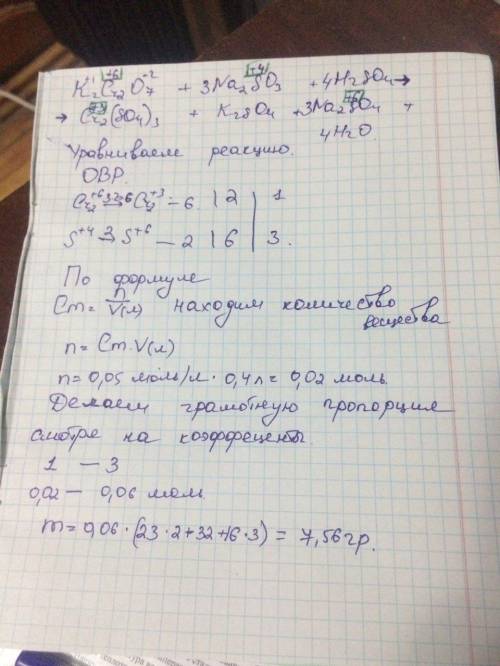 +1 +6 -2 +4
K₂Cr₂O₇ + 3Na₂SO₃ + 4H₂SO₄ →
+3 +6
→ Cr₂(SO₄)₃ + K₂SO₄ + 3Na₂SO₄ +
4H₂O.
Уравниваем реакцию.
ОВР.
Cr₂⁺⁶ → Cr₂⁺³ – 6 | 2 | 1
S⁺⁴ → S⁺⁶ – 2 | 6 | 3.
По формуле
Cm = n/V(л) находим количество
вещества
n = Cm · V(л)
n = 0,05 моль/л · 0,4 л = 0,02 моль.
Делаем грамотную пропорцию
смотря на коэффеценты.
1 – 3
0,02 – 0,06 моль.
m = 0,06 · (23·2+32+16·3) = 7,56 гр.